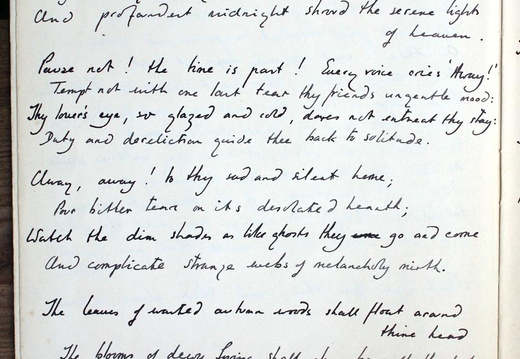 And profoundest midnight shroud the serene lights
of heaven.
Pause not! the time is past! Every voice cries 'Away!'
Tempt not with one last tear thy friends ungentle mood:
Thy lover's eye, so glazed and cold, dares not entreat thy stay:
Duty and dereliction guide thee back to solitude.
Away, away! to thy sad and silent home;
Pour bitter tears on its desolated hearth;
Watch the dim shades as like ghosts they go and come
And complicate strange webs of melancholy mirth.
The leaves of wasted autumn woods shall float around
thine head
The blooms of dewy Spring shall